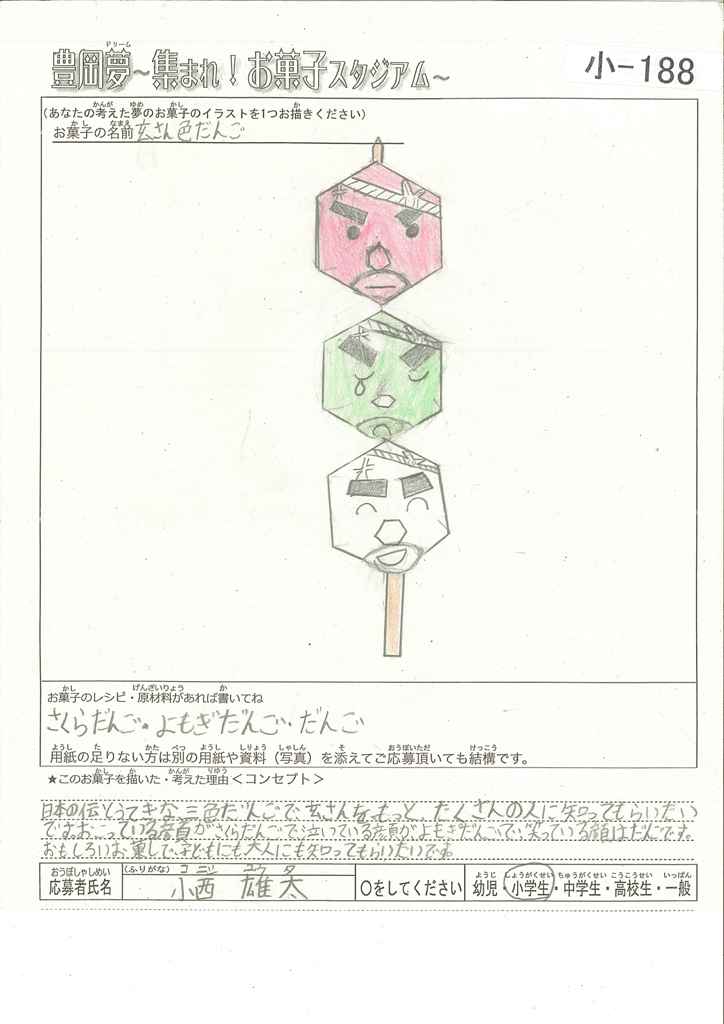 豊岡夢~集まれ!お菓子スタジアム~
小-188
(あなたの考えた夢のお菓子のイラストを1つお描きください)
お菓子の名前 玄さん色だんご
お菓子のレシピ・原材料があれば書いてね
さくらだんご・よもぎだんご・だんご
用紙の足りない方は別の用紙や資料(写真)を添えてご応募頂いても結構です。
★このお菓子を描いた・考えた理由<コンセプト>
日本の伝とうてきな三色だんごで玄さんをもっと、たくさんの人に知ってもらいたい
です。おこっている顔がさくらだんごで泣いている顔がよもぎだんごで笑っている顔はだんごです。
おもしろいお菓しで、子どもにも大人にも知ってもらいたいです。
応募者氏名 (ふりがな) コニシ ユウタ
小西 雄太
○をしてください 幼児・小学生・中学生・高校生・一般